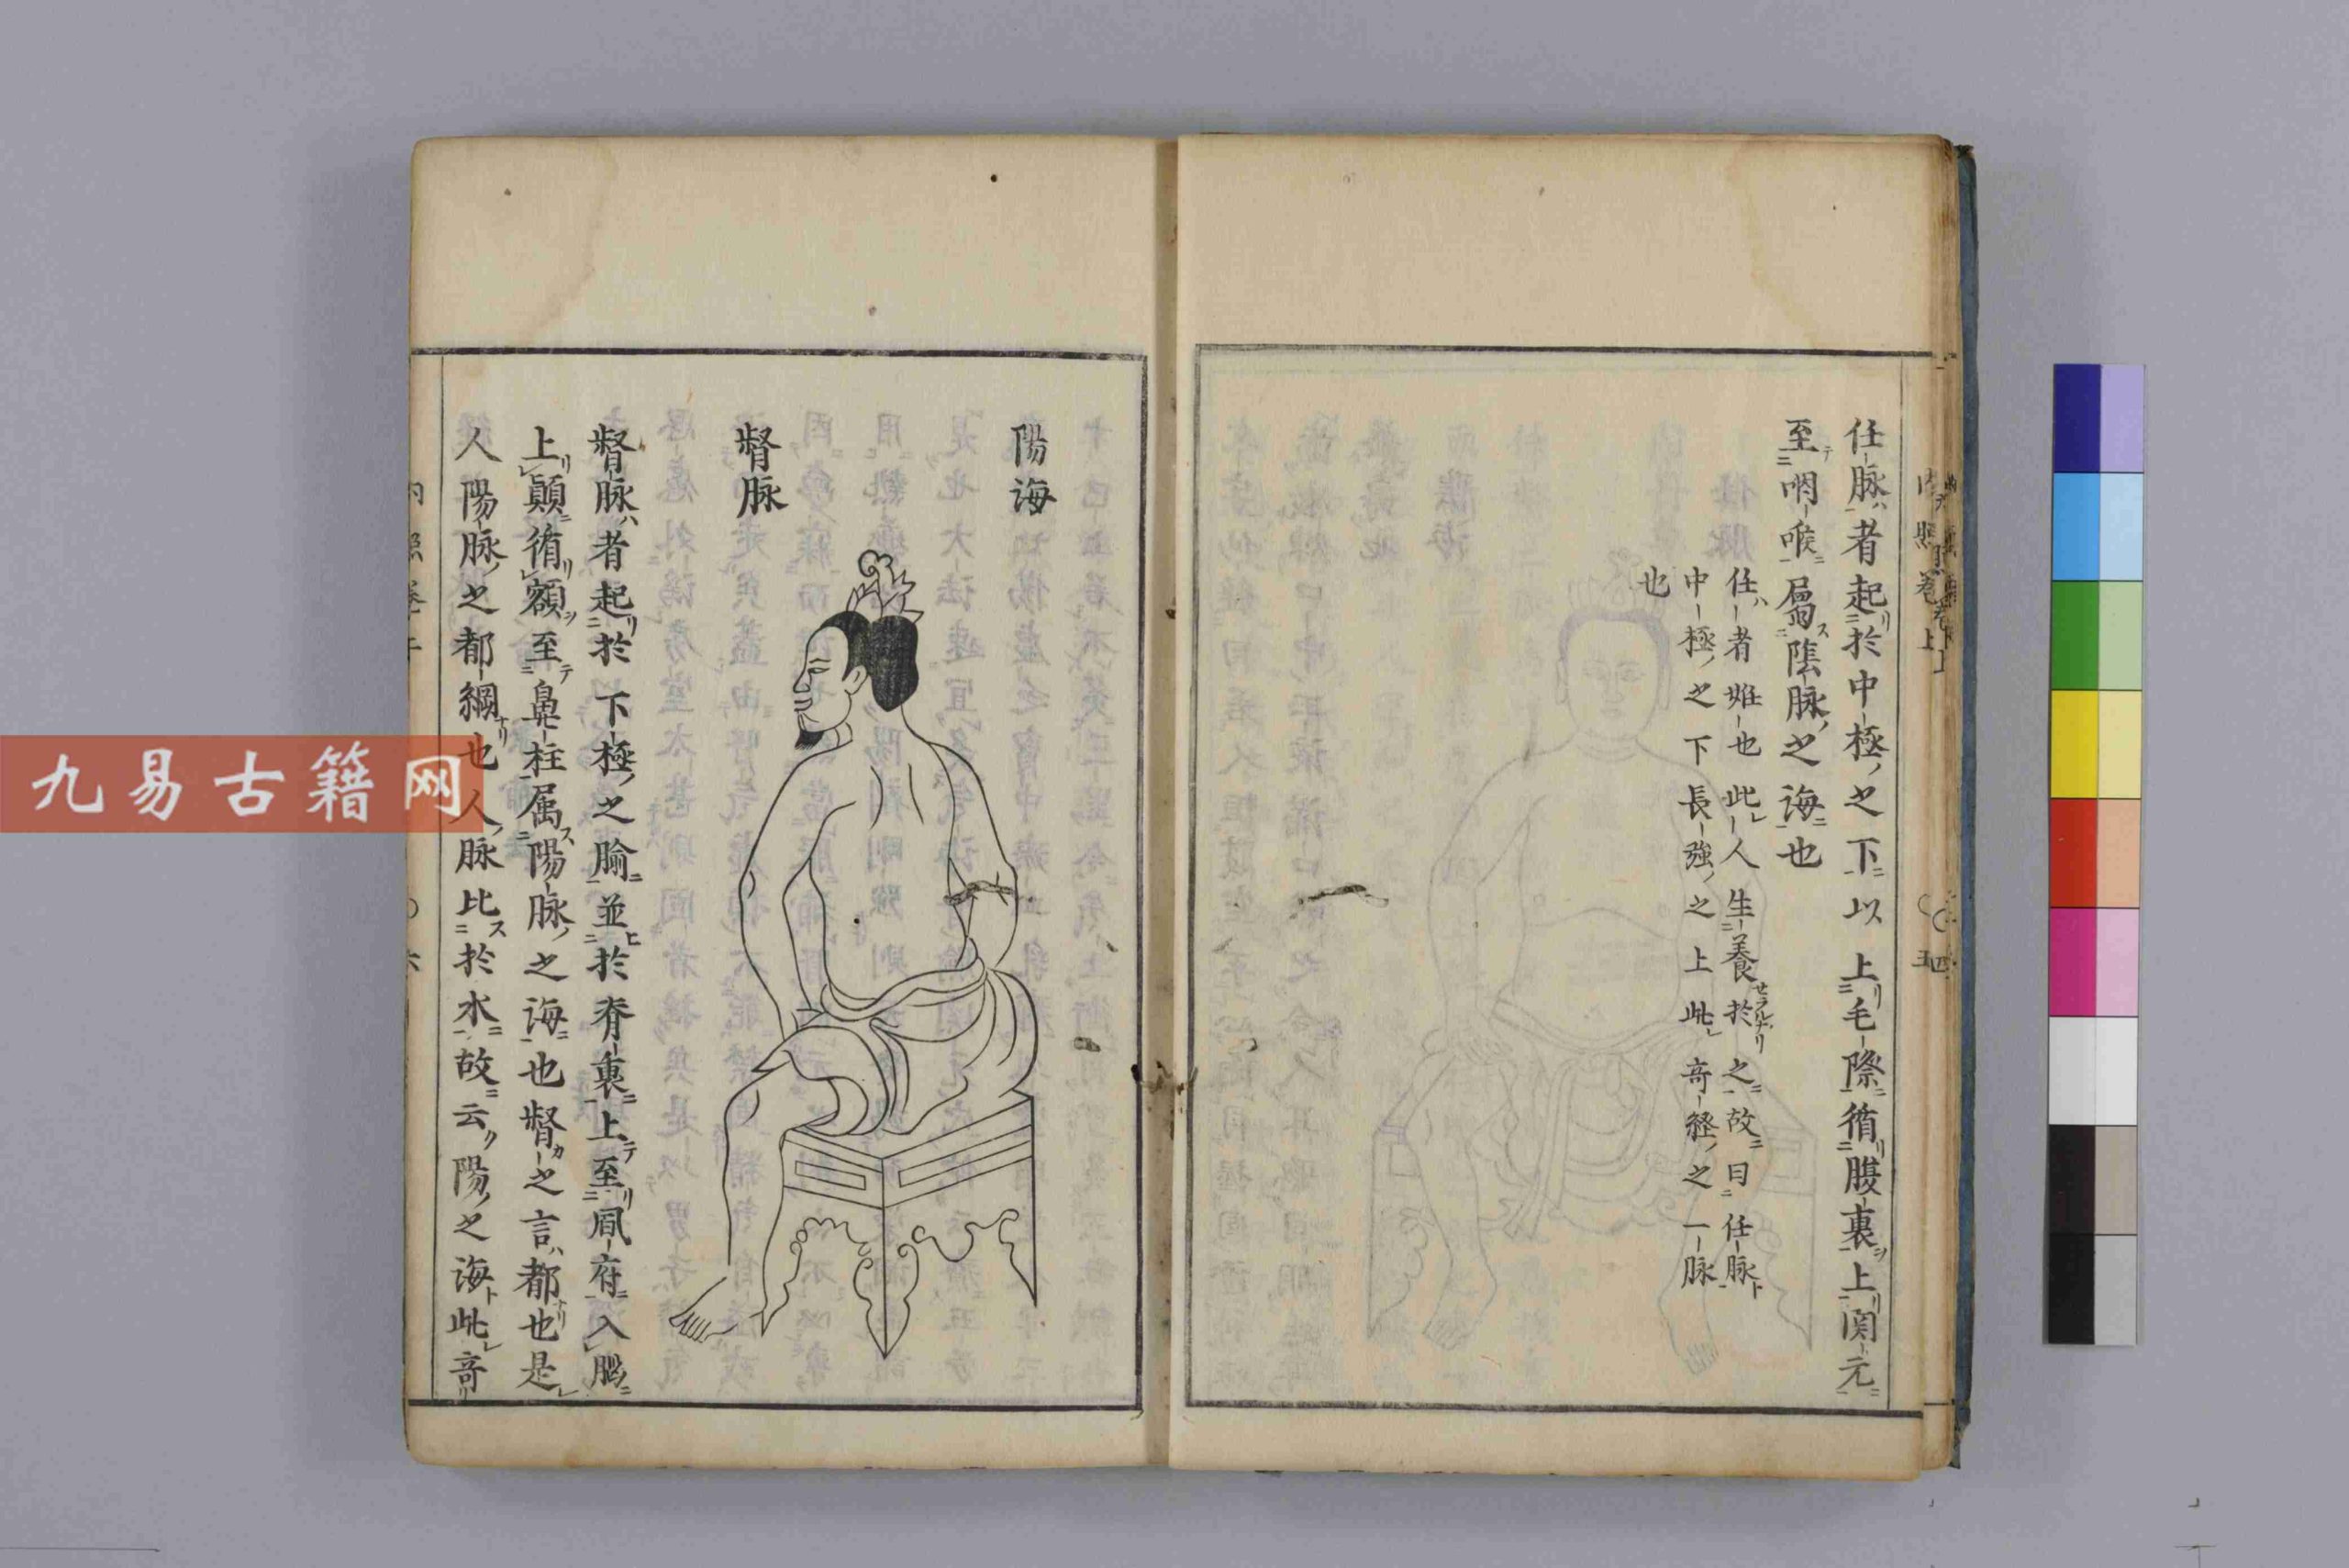 任脉者起於中極之下以上毛際循腹裏上関元
至咽喉屬陰脉之海也
任者妊也此人生養於之故曰任脉
中極之下長強之上此奇経之一脉
也
陽海
督脉
督脉者起於下極之腧並於脊裏上至風府入脳
上顛循額至鼻柱属陽脉之海也督之言都也是
人陽脉之都綱也人脉比於水故云陽之海此奇
九易古籍网